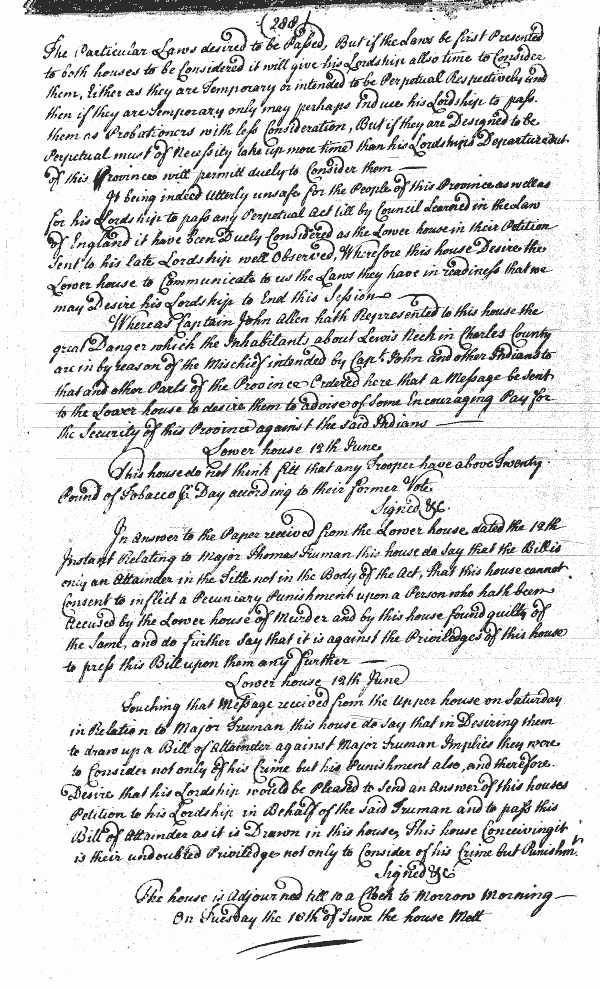 (288)
The Particular Laws desired to be Passed, But if the Laws be first Presented
to both houses to be Considered it will give his Lordship also time to Consider
them, Either as they are Temporary or intended to be Perpetual Respectively and
then if they are Temporary only may perhaps Enduce his Lordship to pass
them as Probationers with less Consideration, But if they are Designed to be
Perpetual must of Necessity take up more time than his Lordships Departure out
of this Province will permit duely to Consider them —
It being indeed Utterly unsafe for the People of this Province as well as
for his Lordship to pass any Perpetual Act till by Council Learned in the Law
of England it have been Duely Considered as the Lower house in their Petition
Sent to his late Lordship well Observed, Wherefore this house Desire the
Lower house to Communicate to us the Laws they have in readiness that we
may Desire his Lordship to End this Session —
Whereas Captain John Allen hath Represented to this house the
great Danger which the Inhabitants about Lewis Neck in Charles County
are in by reason of the Mischief intended by Capt. John and other Indians to
that and other Parts of the Province Ordered here that a Message be sent
to the Lower house to desire them to advise of Some Encouraging Pay for
the Security of this Province against the said Indians —
Lower house 12th June
This house do not think fitt that any Trooper have above Twenty
Pound of Tobacco p. Day according to their former Vote
Signed &c.
In answer to the Paper received from the Lower house dated the 12th
Instant Relating to Major Thomas Truman this house do Say that the Bill is
only an Attainder in the Title not in the Body of the Act, that this house cannot
Consent to inflict a Pecuniary Punishment upon a Person who hath been
Accused by the Lower house of Murder and by this house found guilty of
the Same, and do further Say that it is against the Priviledges of this house
to press this Bill upon them any further —
Lower house 12th June
Touching that Message received from the Upper house on Saturday
in Relation to Major Truman this house do Say that in Desiring them
to draw up a Bill of Attainder against Major Truman Implies they were
to Consider not only of his Crime but his Punishment also, and therefore
Desire that his Lordship would be Pleased to Send an Answer of this houses
Petition to his Lordship in Behalf of the Said Truman and to pass this
Bill of Attainder as it is Drawn in this house, This house Conceiving it
is their undoubted Priviledge not only to Consider of his Crime but Punishmt.
Signed &c
The house is Adjourned till 10 a Clock to Morrow Morning —
On Tuesday the 13th of June the house Mett